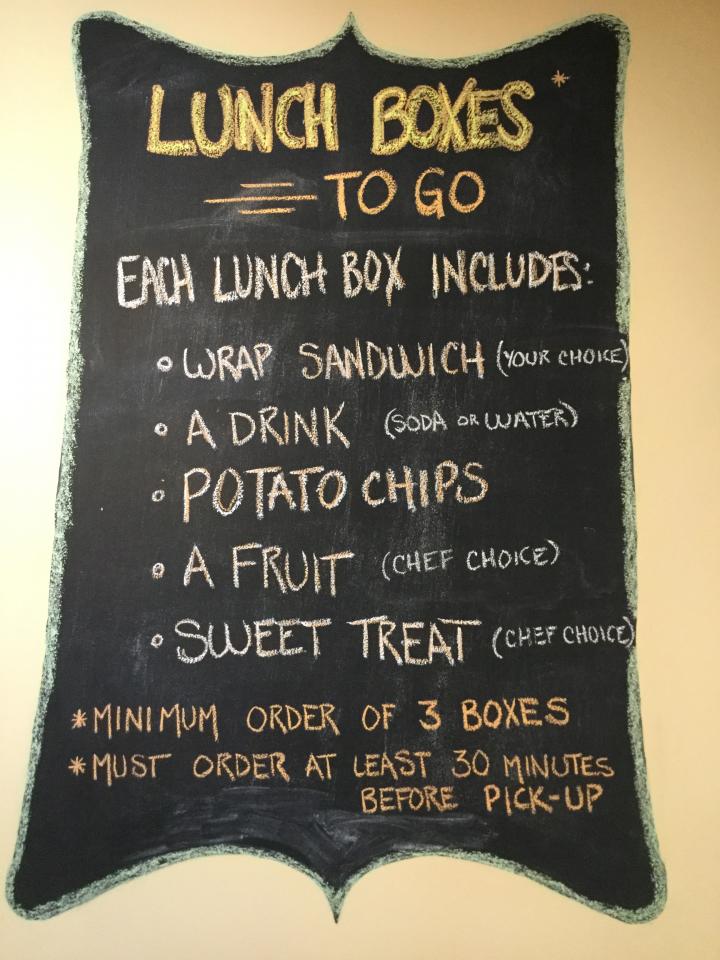 LUNCH BOXES*
TO GO
EACH LUNCH BOX INCLUDES:
• WRAP SANDWICH (YOUR CHOICE)
• A DRINK (SODA OR WATER)
• POTATO CHIPS
• A FRUIT (CHEF CHOICE)
• SWEET TREAT (CHEF CHOICE)
*MINIMUM ORDER OF 3 BOXES
*MUST ORDER AT LEAST 30 MINUTES
BEFORE PICK-UP